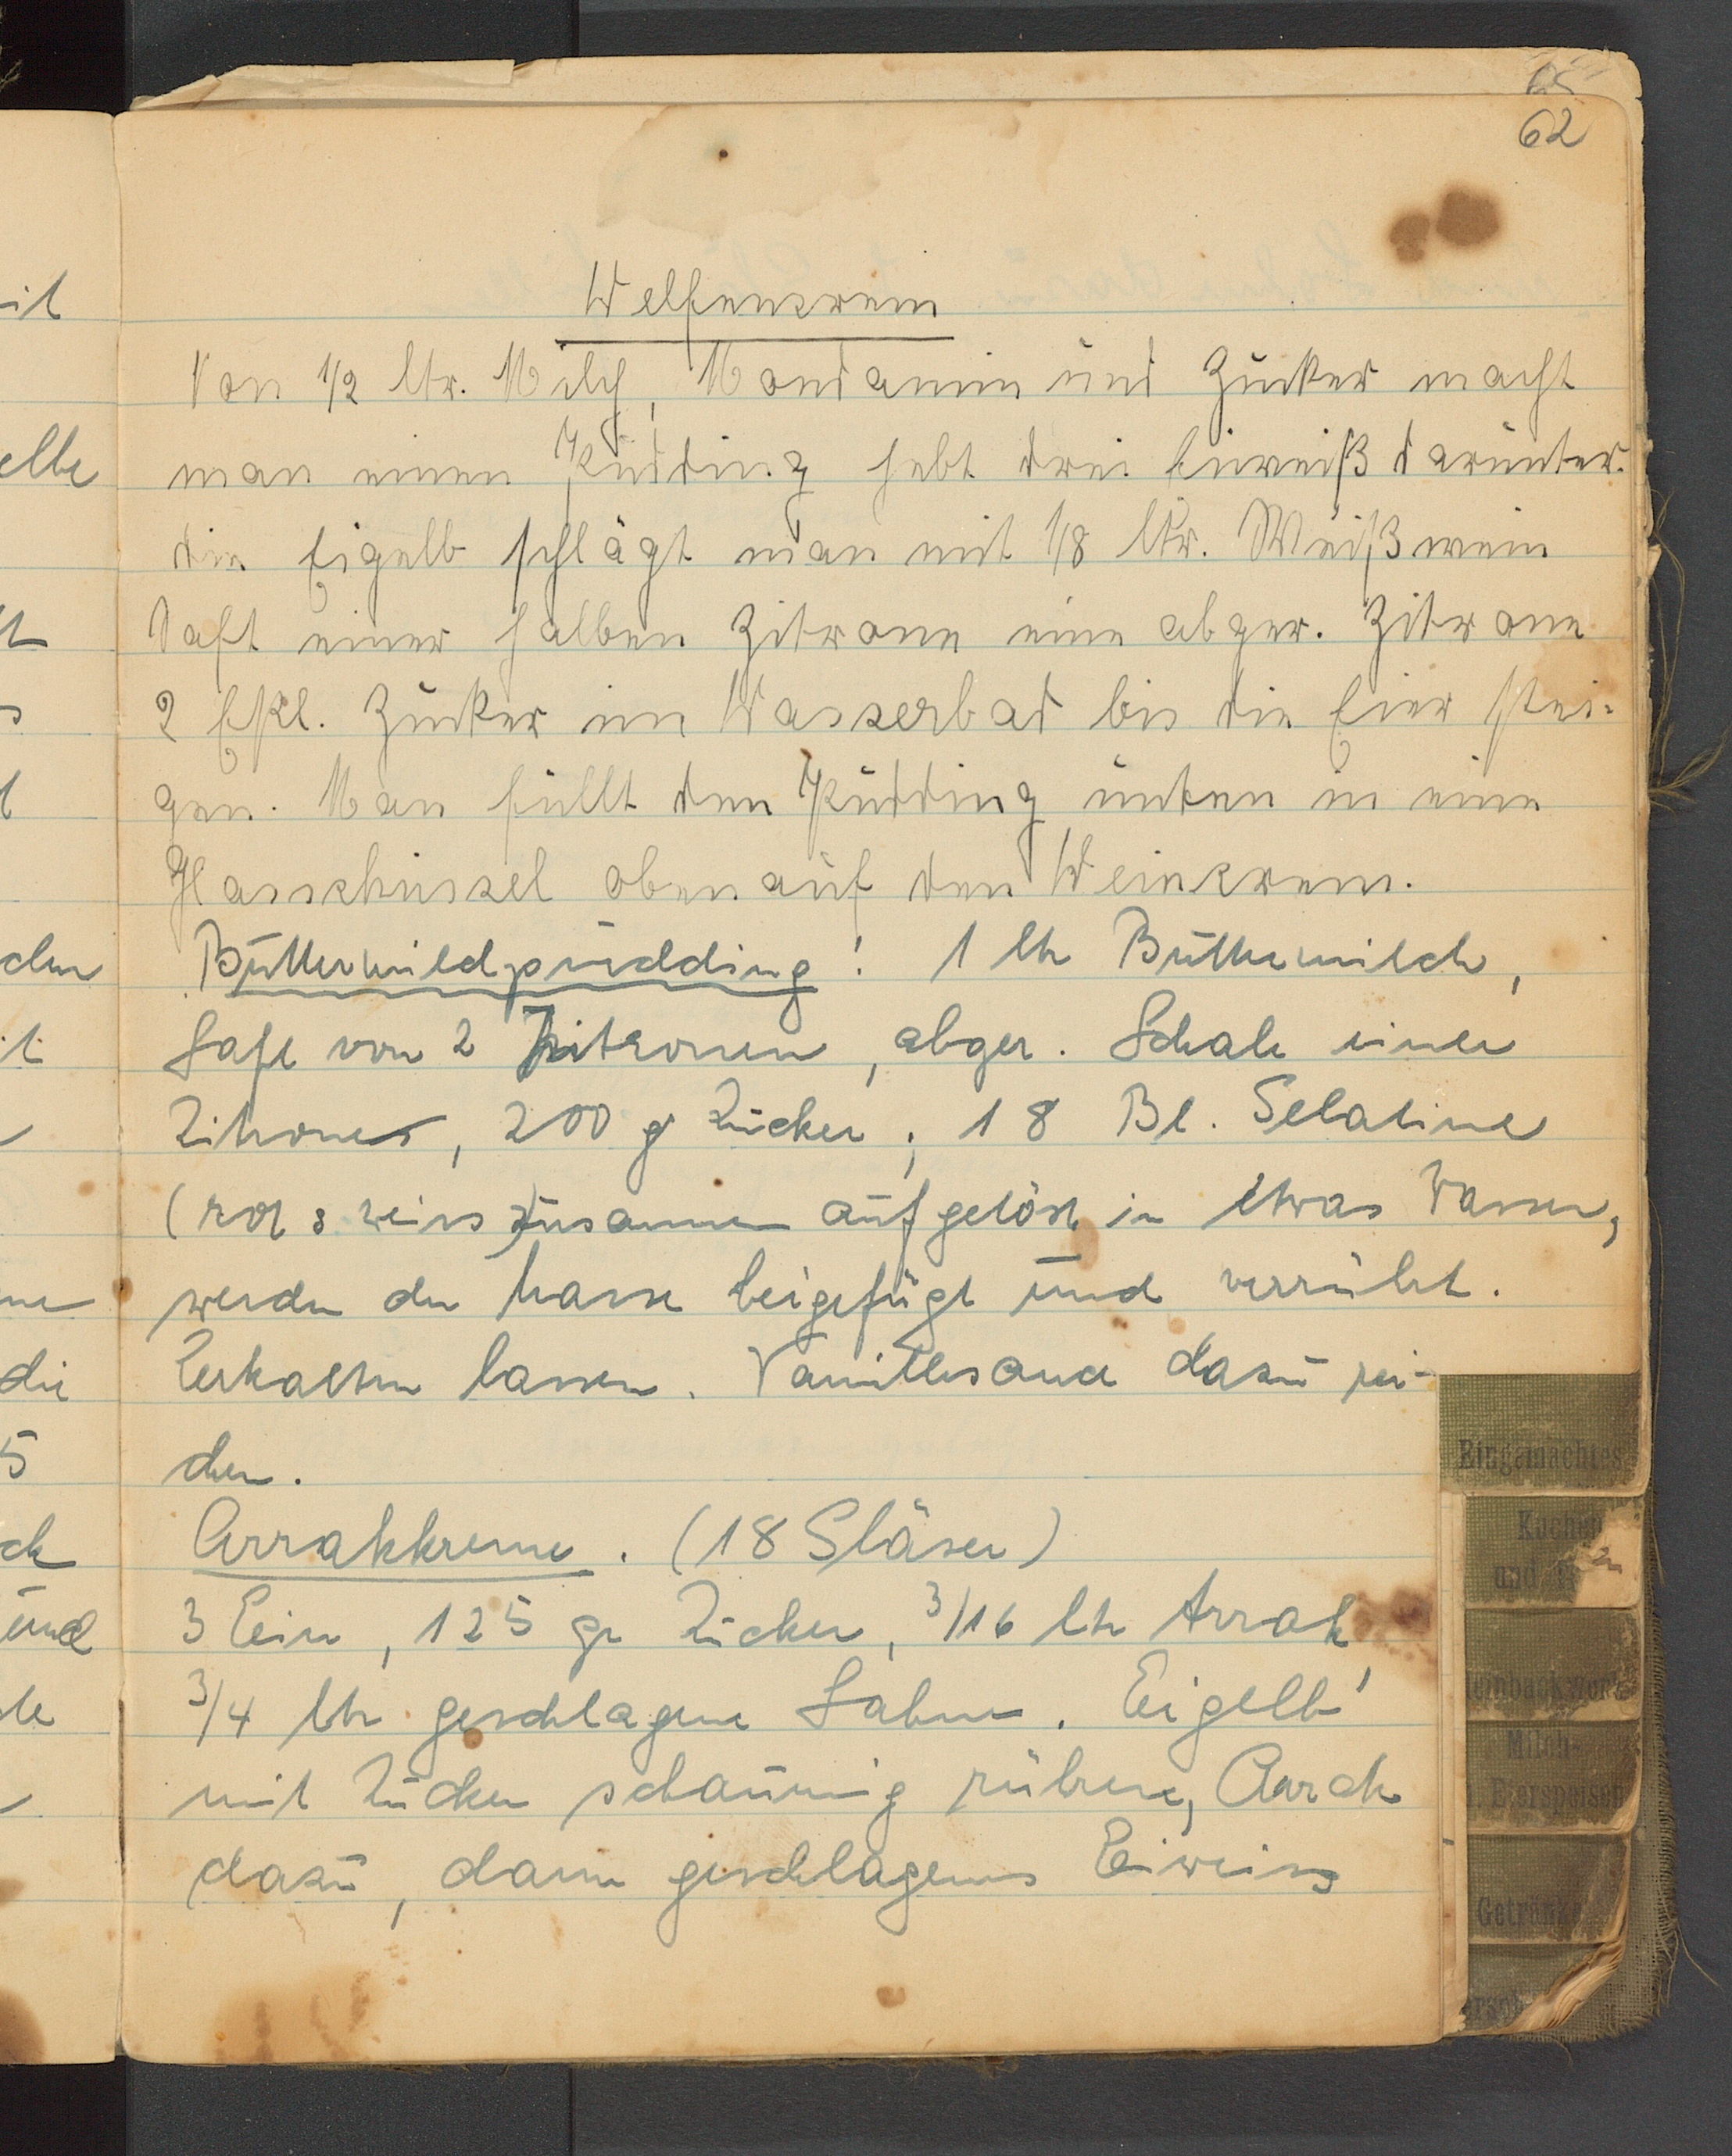 65
62
Welfenkrem
Von 1/2 ltr. Milch, Mondamin und Zucker macht
man einen Pudding hebt drei Eiweiß darunter.
die Eigelb schlägt man mit 1/8 ltr. Weißwein
Saft einer halben Zitrone eine abger. Zitrone
2 Eßl. Zucker im Wasserbad bis die Eier stei=
gen. Man füllt den Pudding unten in eine
Glasschüssel obenauf den Weinkrem.
Buttermilchpudding: 1 ltr Buttermilch,
Saft von 2 Zitronen, abger. Schale einer
Zitrone, 200 g Zucker; 18 Bl. Gelatine
(rot & weiss) zusammen aufgelöst in etwas Wasser,
werden der Masse beigefügt und verrührt.
Erkalten lassen. Vanillesauce dazu rei-
chen.
Arrakkreme. (18 Gläser)
3 Eier, 125 gr Zucker, 3/16 ltr Arrak,
3/4 ltr geschlagene Sahne. Eigelb
mit Zucker schaumig rühren, Arrak
dazu, dann geschlagenes Eiweiss
it
elbe
t
s
t
den
it
die
5
ck
und
le
Eingemachtes
Kuchen
und
leinbackwerk
Milch-
u. Eierspeisen
Getränke